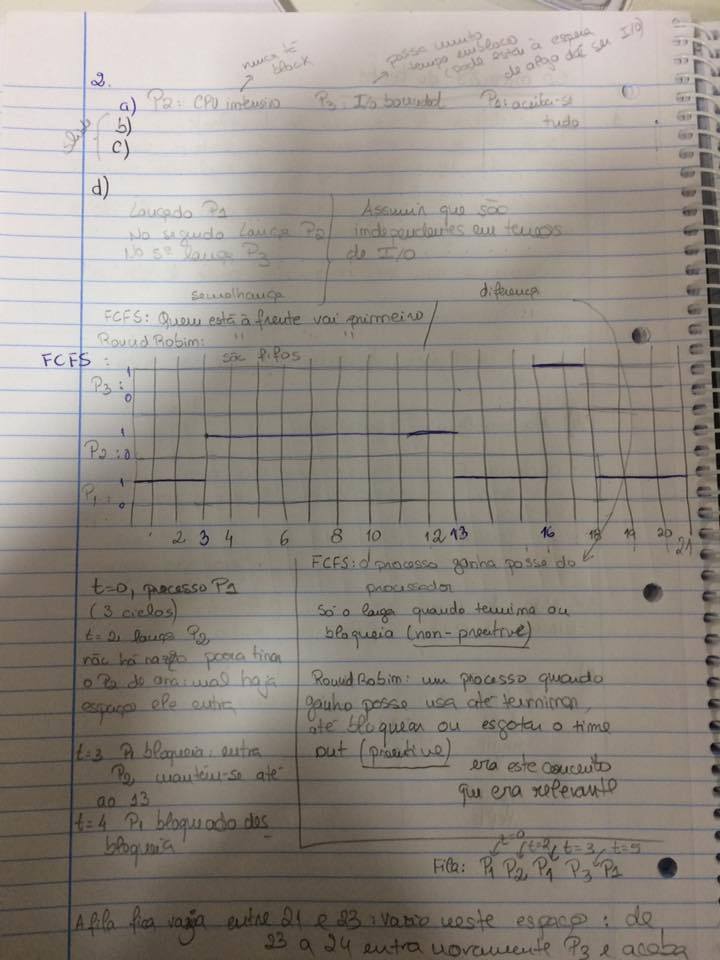 2.
nunca tá
block
passa muito
tempo em bloco
(pode estar à espera
de algo daí ser I/O)
a) P2: CPU intensivo P3: I/O bound P1: aceita-se
tudo
b)
c)
d)
Lançado P1
No segundo lança P2
No 5º lança P3
Assumir que são
independentes em termos
de I/O
semelhança diferença
FCFS: Quem está à frente vai primeiro
Round Robim: " "
são fifos
FCFS:
P3: 1
0
P2: 1
0
P1: 1
0
1 2 3 4 6 8 10 12 13 16 18 19 20 21
t=0, processo P1
(3 ciclos)
t=2 lança P2
não há razão para tirar
o P1 do ar: mal haja
espaço ele entra
t=3 P1 bloqueia: entra
P2, mantém-se até
ao 13
t=4 P1 bloqueado des
bloqueia
FCFS: o processo ganha posse do
processador
Só o larga quando termina ou
bloqueia (non-preative)
Round Robim: um processo quando
ganha posse usa até terminar,
até bloquear ou esgotar o time
out (preative)
era este conceito
que era relevante
t=0 t=2 t=3 t=5
Fila: P1 P2 P1 P3 P1
A fila fica vazia entre 21 e 23: vazio neste espaço: de
23 a 24 entra novamente P3 e acaba